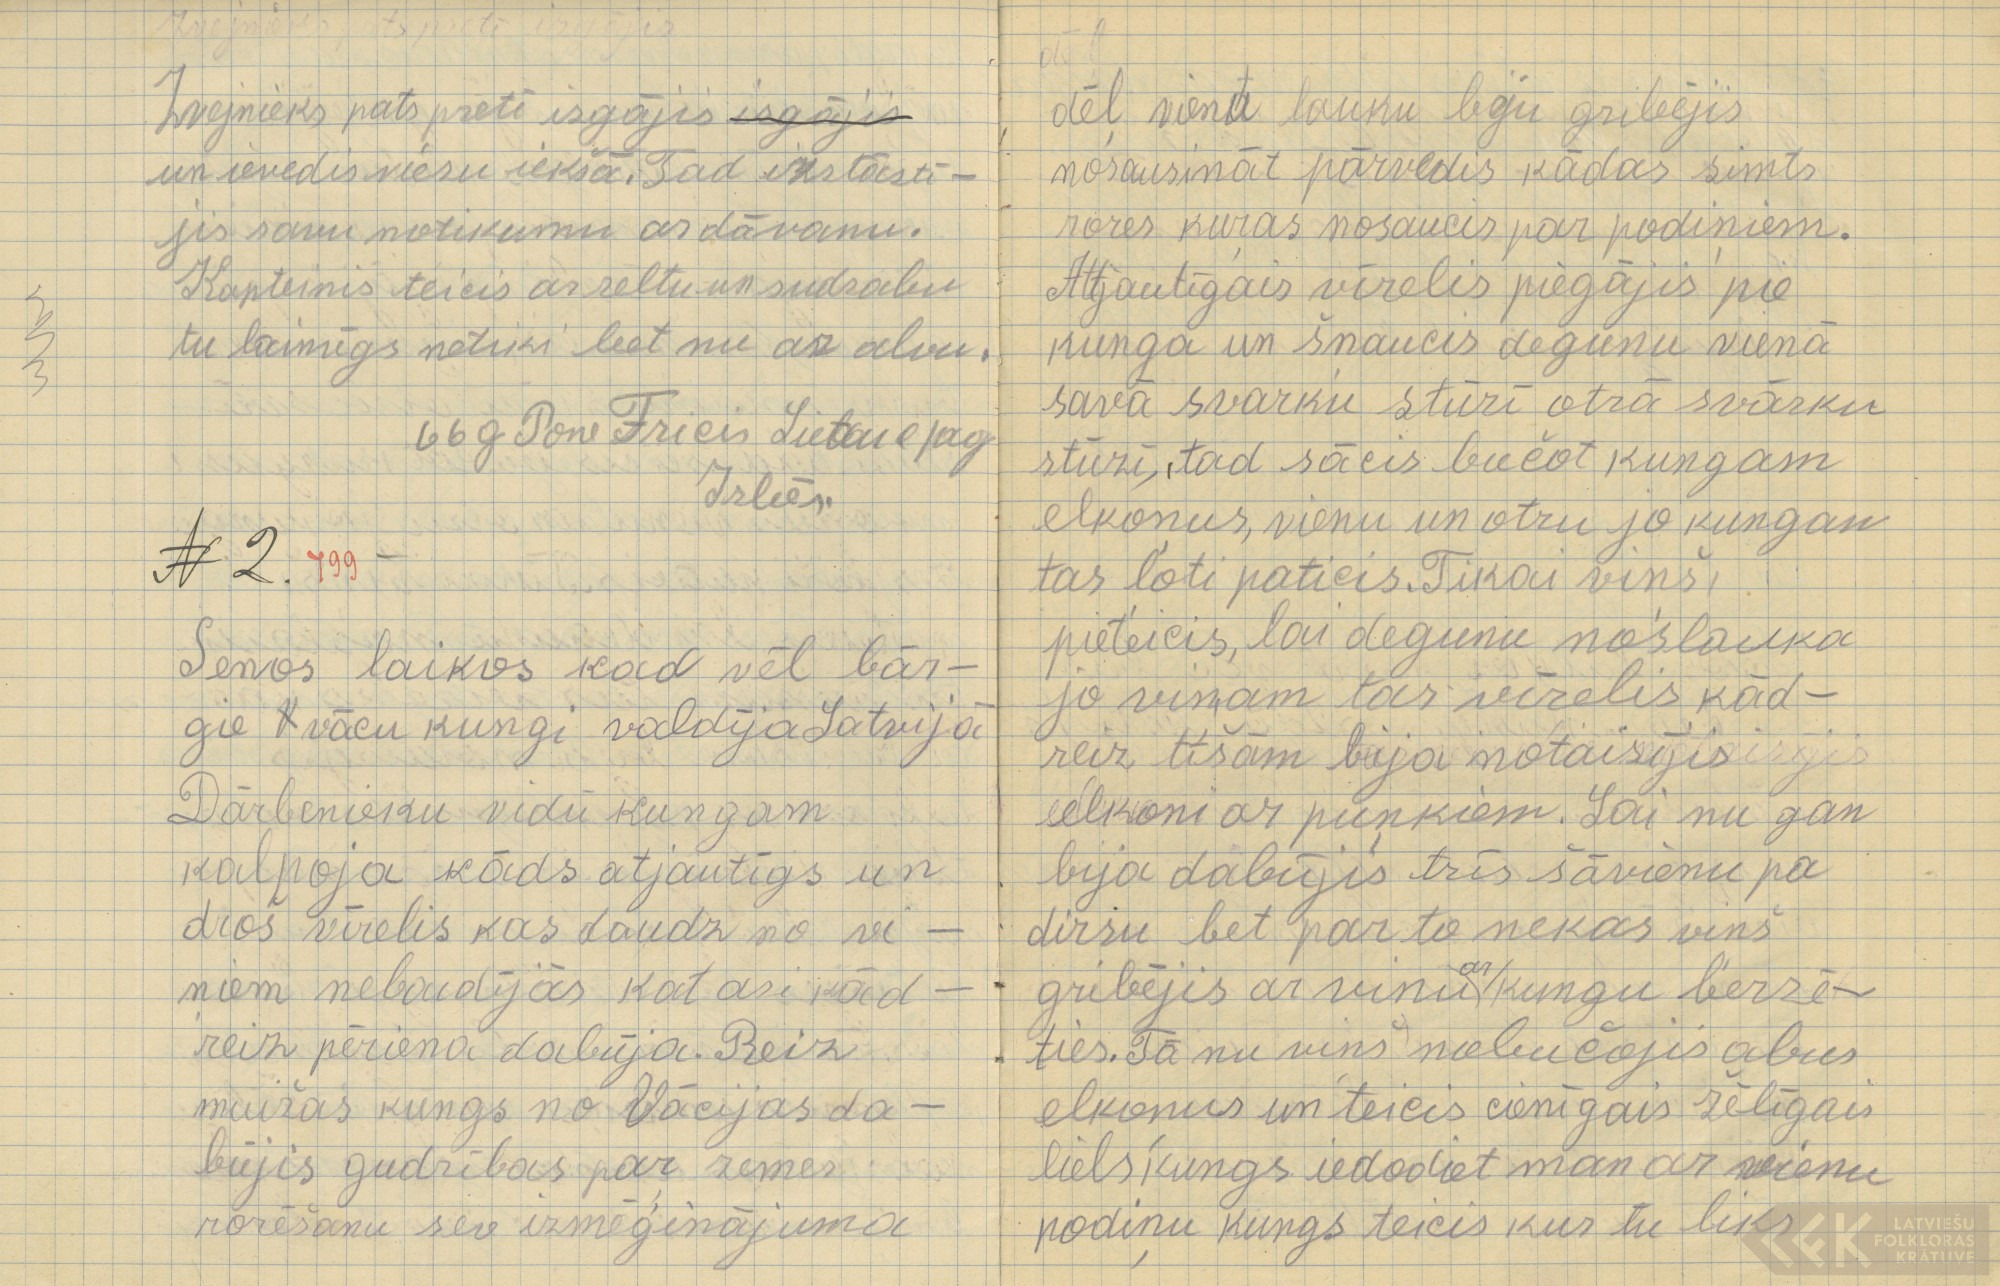 Zvejnieks pats pretī izgājis
Zvejnieks pats pretī izgājis izgājis
un ievedis viesu iekšā. Tad izstāstī-
jis savu notikumu ar dāvanu.
Kapteinis teicis ar zeltu un sudrabu
tu laimīgs netiki bet nu ar alvu.
66 g Pone Fricis Lielau e pag
Irbēs.
№ 2. 799 –
Senos laikos kad vēl bār-
gie vācu kungi valdīja Latvijā
Dārbenieku vidū kungam
kalpoja kāds atjautīgs un
drošs vīrelis kas daudz no vi-
ņiem nebaidījās kat ari kād-
reiz pēriena dabūja. Reiz
muižas kungs no Vācijas da-
būjis gudrības par zemes
rorēšanu sev izmēģinājuma
dēļ
dēļ vienu lauku bģu gribējis
nosausināt pārvedis kādas simts
rores kuŗas nosaucis par podiņiem.
Attjautīgais vīrelis piegājis pie
kunga un šņaucis degunu vienā
savā svarku stūrī otrā svārku
stūrī, tad sācis bučot kungam
elkoņus, vienu un otru jo kungan
tas ļoti paticis. Tikai viņš
pieteicis, lai degunu noslauka
jo viņam tas vīrelis kād-
reiz tīšām bija notaisījis
elkoni ar puņķiem. Lai nu gan
bija dabūjis trīs šāvienu pa
dirsu bet par to nekas viņš
gribējis ar viņu ar kungu berzē-
ties. Tā nu viņš nobučojis abus
elkoņus un teicis cienīgais žēlīgais
liels kungs iedodiet man ar vienu
podiņu kungs teicis kur tu liks
LATVIEŠU
FOLKLORAS
KRĀTUVE